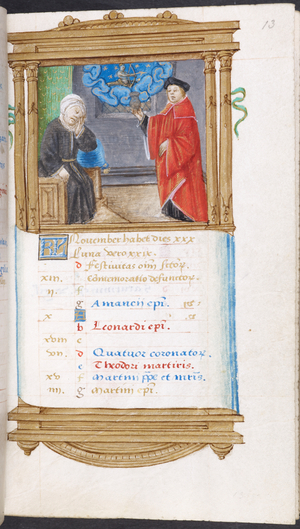 13
KL November habet dies xxx
Luna vero xxix.
d Festivitas om̃ scõꝝ.
xiii. e Comemoratio defunctoꝝ.
ii. f
g Amancii ep̃i.
x
b Leonardi ep̃i.
xviii c
vii. d Quatuor coronatoꝝ.
e Theodori martiris.
xv f Martini pp̃e et m̃ris.
iiii. g Martini ep̃i.